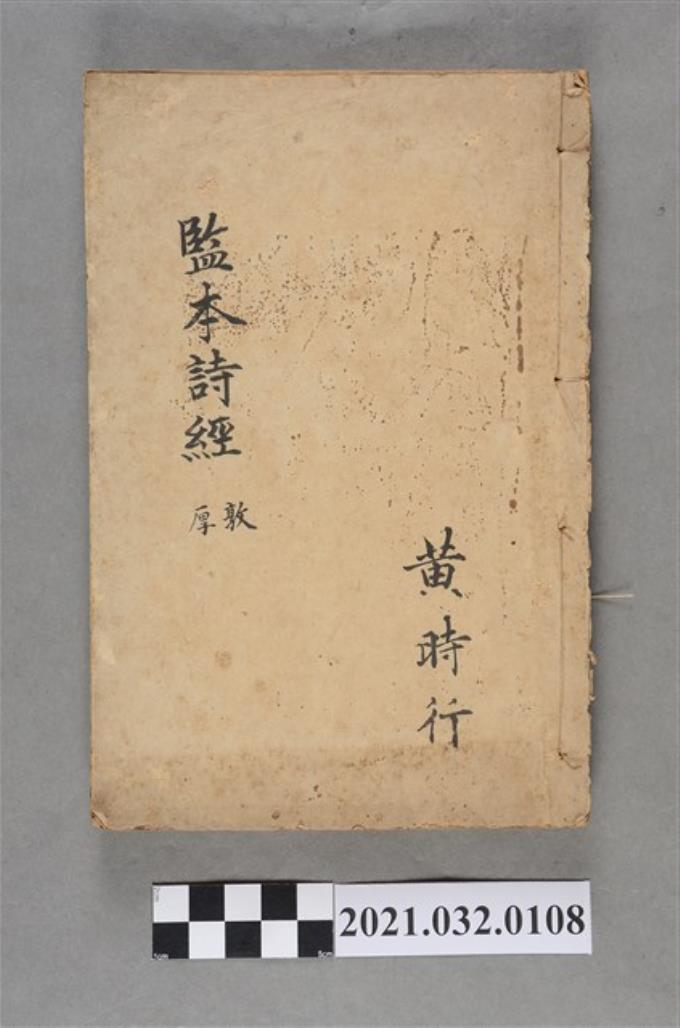 監本詩經
敦厚
黃時行
2021.032.0108